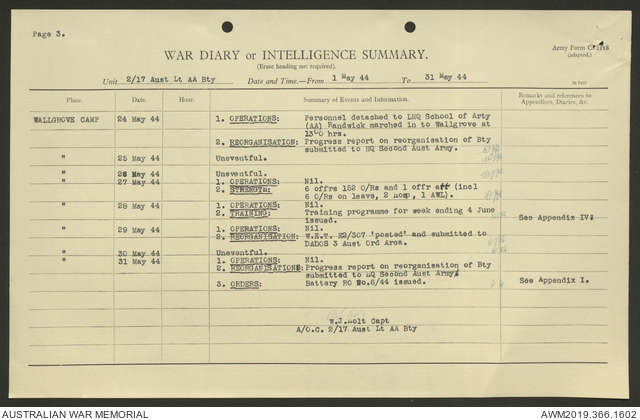 Page 3.
Army Form C. 2118
(adapted.)
WAR DIARY or INTELLIGENCE SUMMARY.
(Erase heading not required).
Unit 2/17 Aust Lt AA Bty Date and Time.—From 1 May 44 To 31 May 44
Place. Date. Hour. Summary of Events and Information. Remarks and references to Appendices, Diaries, &c.
WALLGROVE CAMP 24 May 44 1. OPERATIONS: Personnel detached to LHQ School of Arty
(AA) Randwick marched in to Wallgrove at
1300 hrs.
2. REORGANISATION: Progress report on reorganisation of Bty
submitted to HQ Second Aust Army.
" 25 May 44 Uneventful.
26 May 44 Uneventful.
" 27 May 44 1. OPERATIONS: Nil.
2. STRENGTH: 6 offrs 152 O/Rs and 1 offr att (incl
6 O/Rs on leave, 2 hosp, 1 AWL).
" 28 May 44 1. OPERATIONS: Nil.
2. TRAINING: Training programme for week ending 4 June See Appendix IV.
issued.
" 29 May 44 1. OPERATIONS: Nil.
2. REORGANISATION: W.E.T. E2/307 'posted' and submitted to
DADOS 3 Aust Ord Area.
" 30 May 44 Uneventful.
" 31 May 44 1. OPERATIONS: Nil.
2. REORGANISATION: Progress report on reorganisation of Bty
submitted to HQ Second Aust Army.
3. ORDERS: Battery RO No.6/44 issued. See Appendix I.
W.J. Holt Capt
A/O.C. 2/17 Aust Lt AA Bty
AUSTRALIAN WAR MEMORIAL AWM2019.366.1602